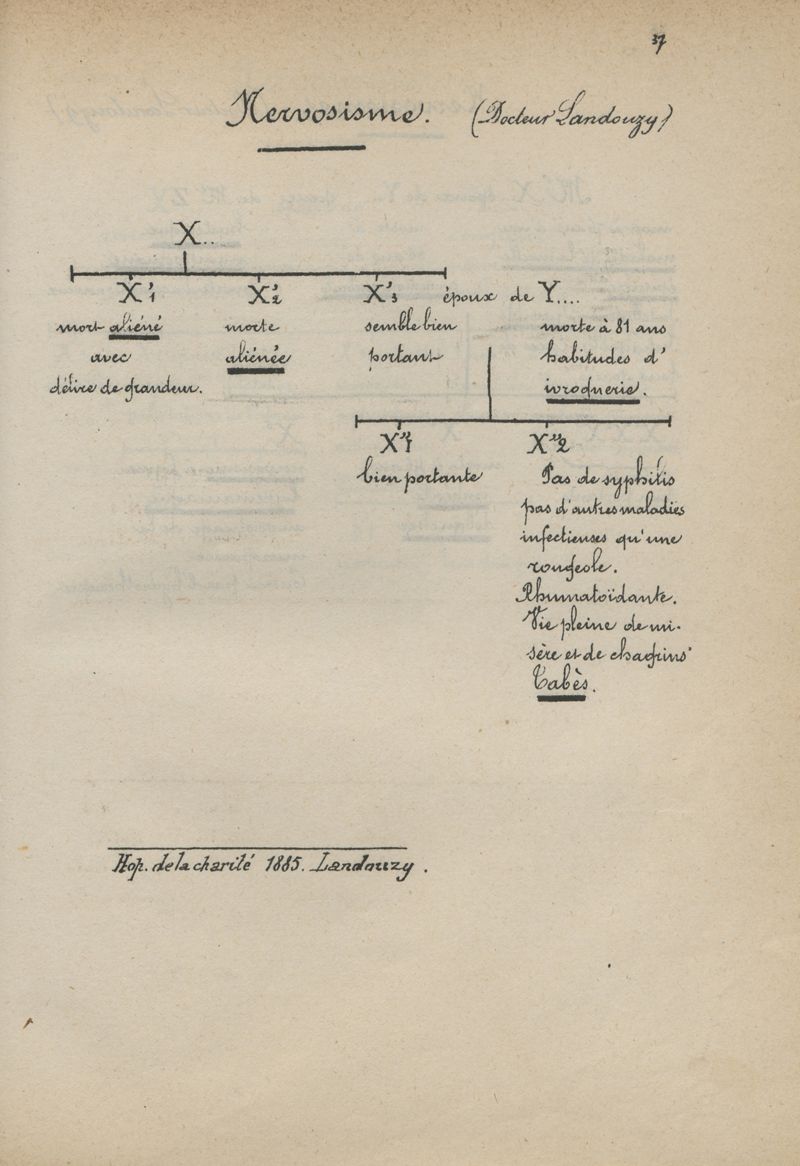 37
Nervosisme. (Docteur Landouzy)
X..
X'1 X'2 X'3 époux de Y....
mort aliéné morte semble bien morte à 81 ans
avec aliénée portant habitudes d'
délire de grandeur. ivrognerie.
X"1 X"2
bien portante Pas de syphilis
pas d'autres maladies
infectieuses qu'une
rougeole.
Rhumatoïdante.
Vie pleine de mi-
sère et de chagrins
Tabès.
Hop. de la charité 1885. Landouzy.